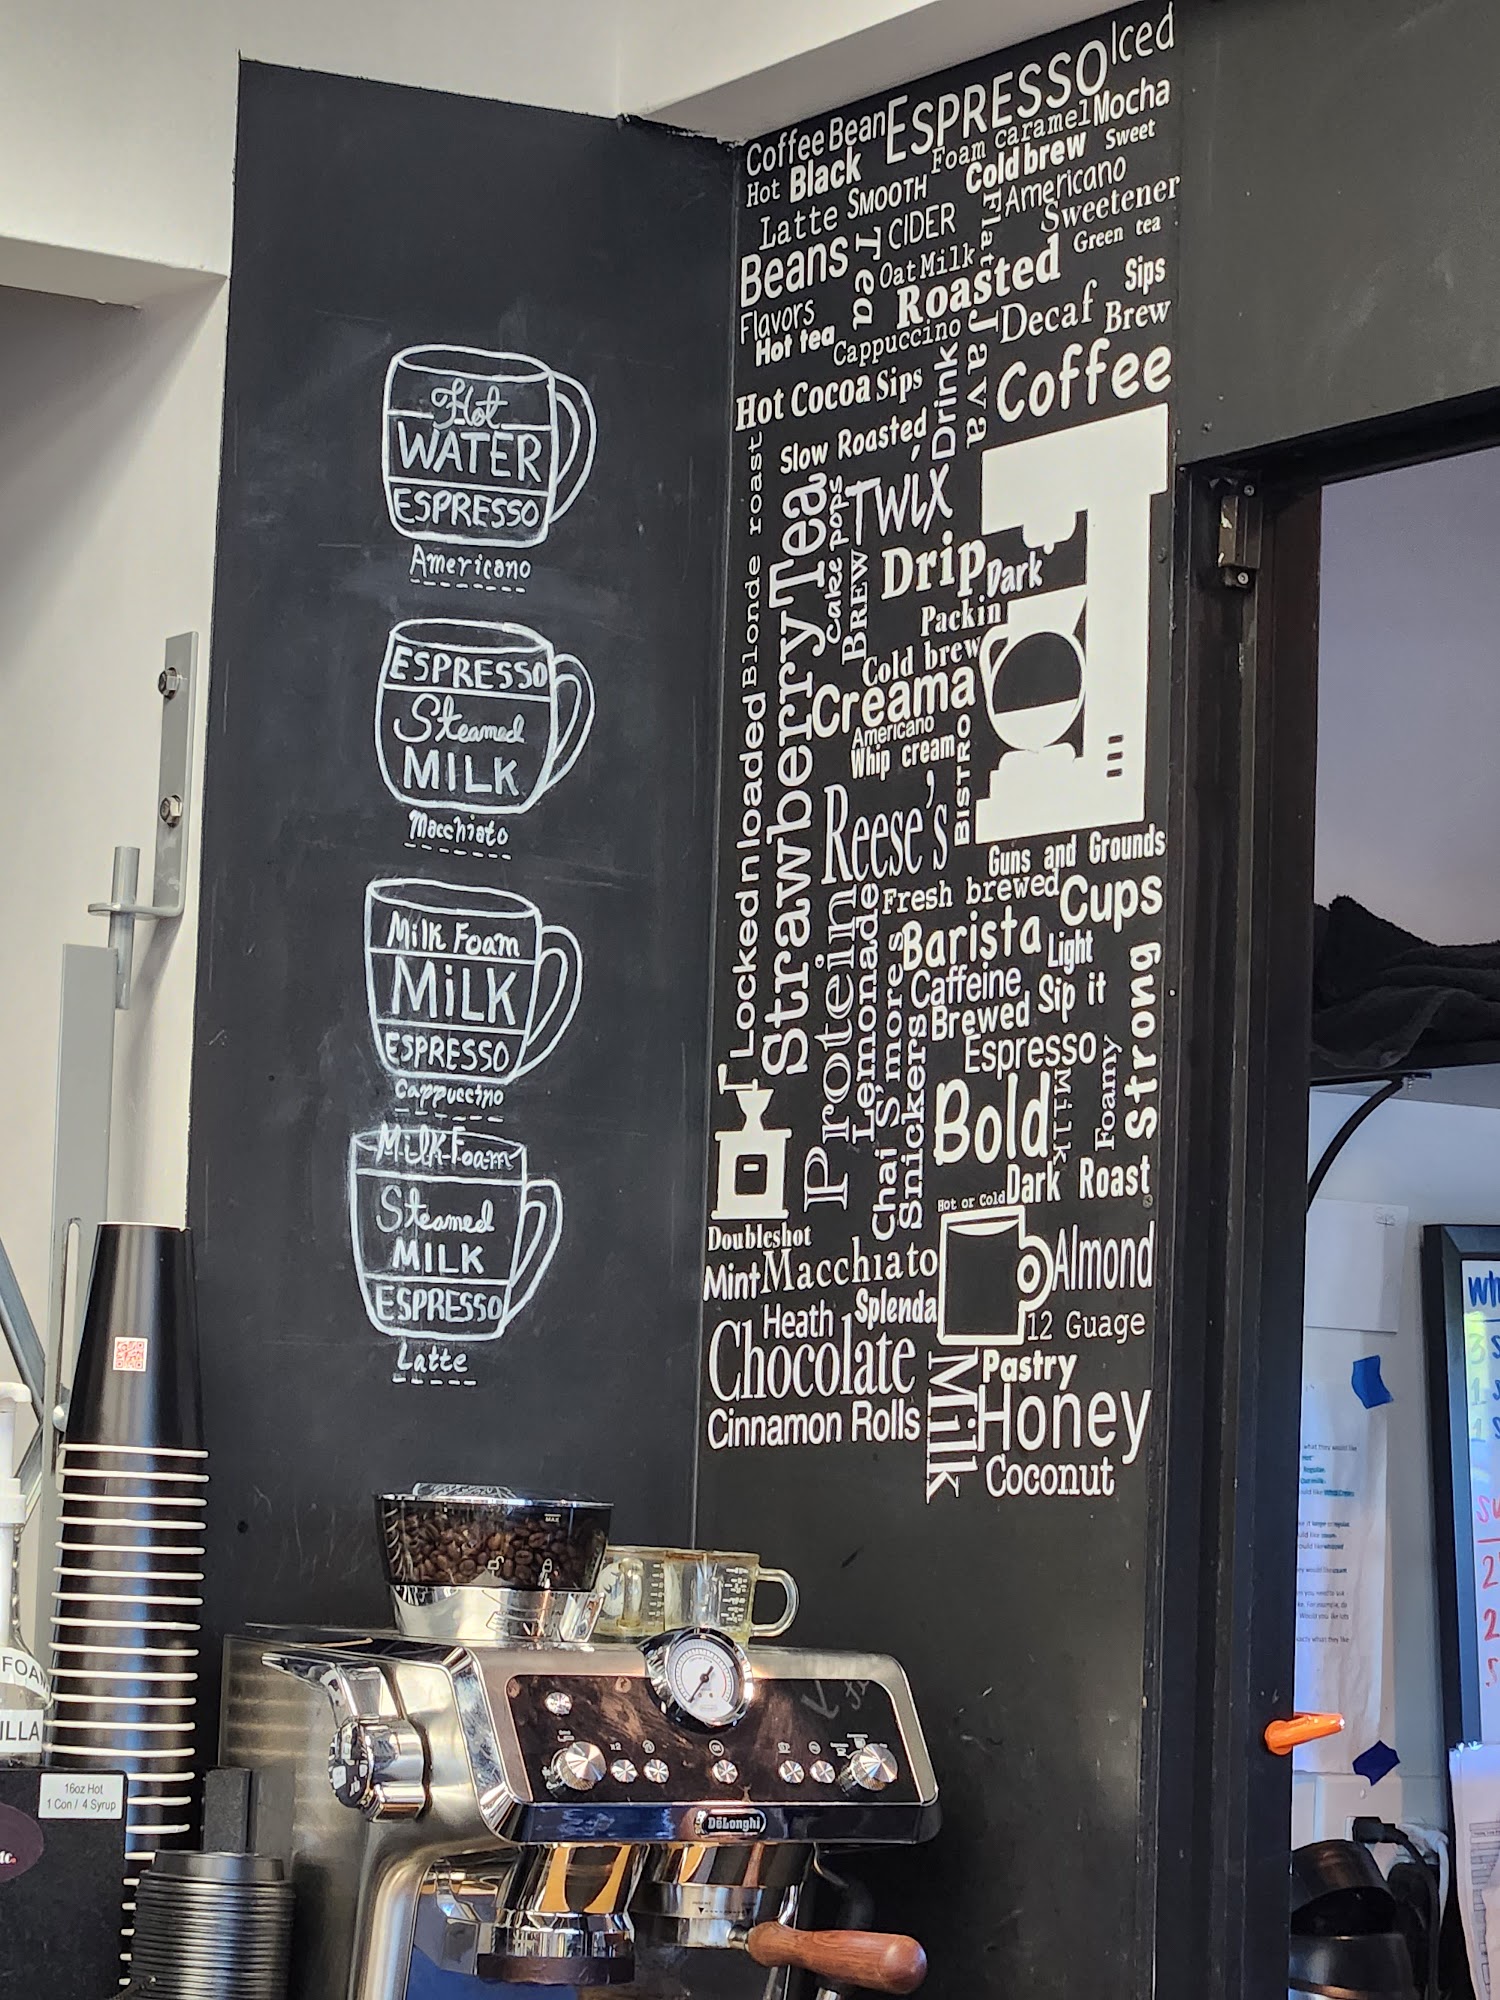 Hot
WATER
ESPRESSO
Americano
ESPRESSO
Steamed
MILK
Macchiato
Milk Foam
MiLK
ESPRESSO
Cappuccino
Milk Foam
Steamed
MILK
ESPRESSO
Latte
Coffee Bean ESPRESSO Iced
Hot Black Foam caramel Mocha
Latte SMOOTH Cold brew Sweet
Beans Tea CIDER Flat Americano
Sweetener
Oat Milk Green tea
Flavors Roasted Sips
Hot tea Cappuccino Java Decaf Brew
Hot Cocoa Sips Drink Coffee
Blonde roast Slow Roasted
Strawberry Tea Cake pops TWIX
BREW Drip Dark
Packin
Cold brew
Creama
Americano
Whip cream
Lockednloaded Reese's BISTRO
Guns and Grounds
Protein Lemonade Fresh brewed Cups
S'mores Barista Light
Caffeine Sip it Strong
Snickers Brewed
Espresso
Chai Bold Milk Foamy
Hot or Cold Dark Roast
Doubleshot
Mint Macchiato Almond
Heath Splenda 12 Guage
Chocolate Milk Pastry
Cinnamon Rolls Honey
Coconut
MAX
DeLonghi
16oz Hot
1 Con / 4 Syrup